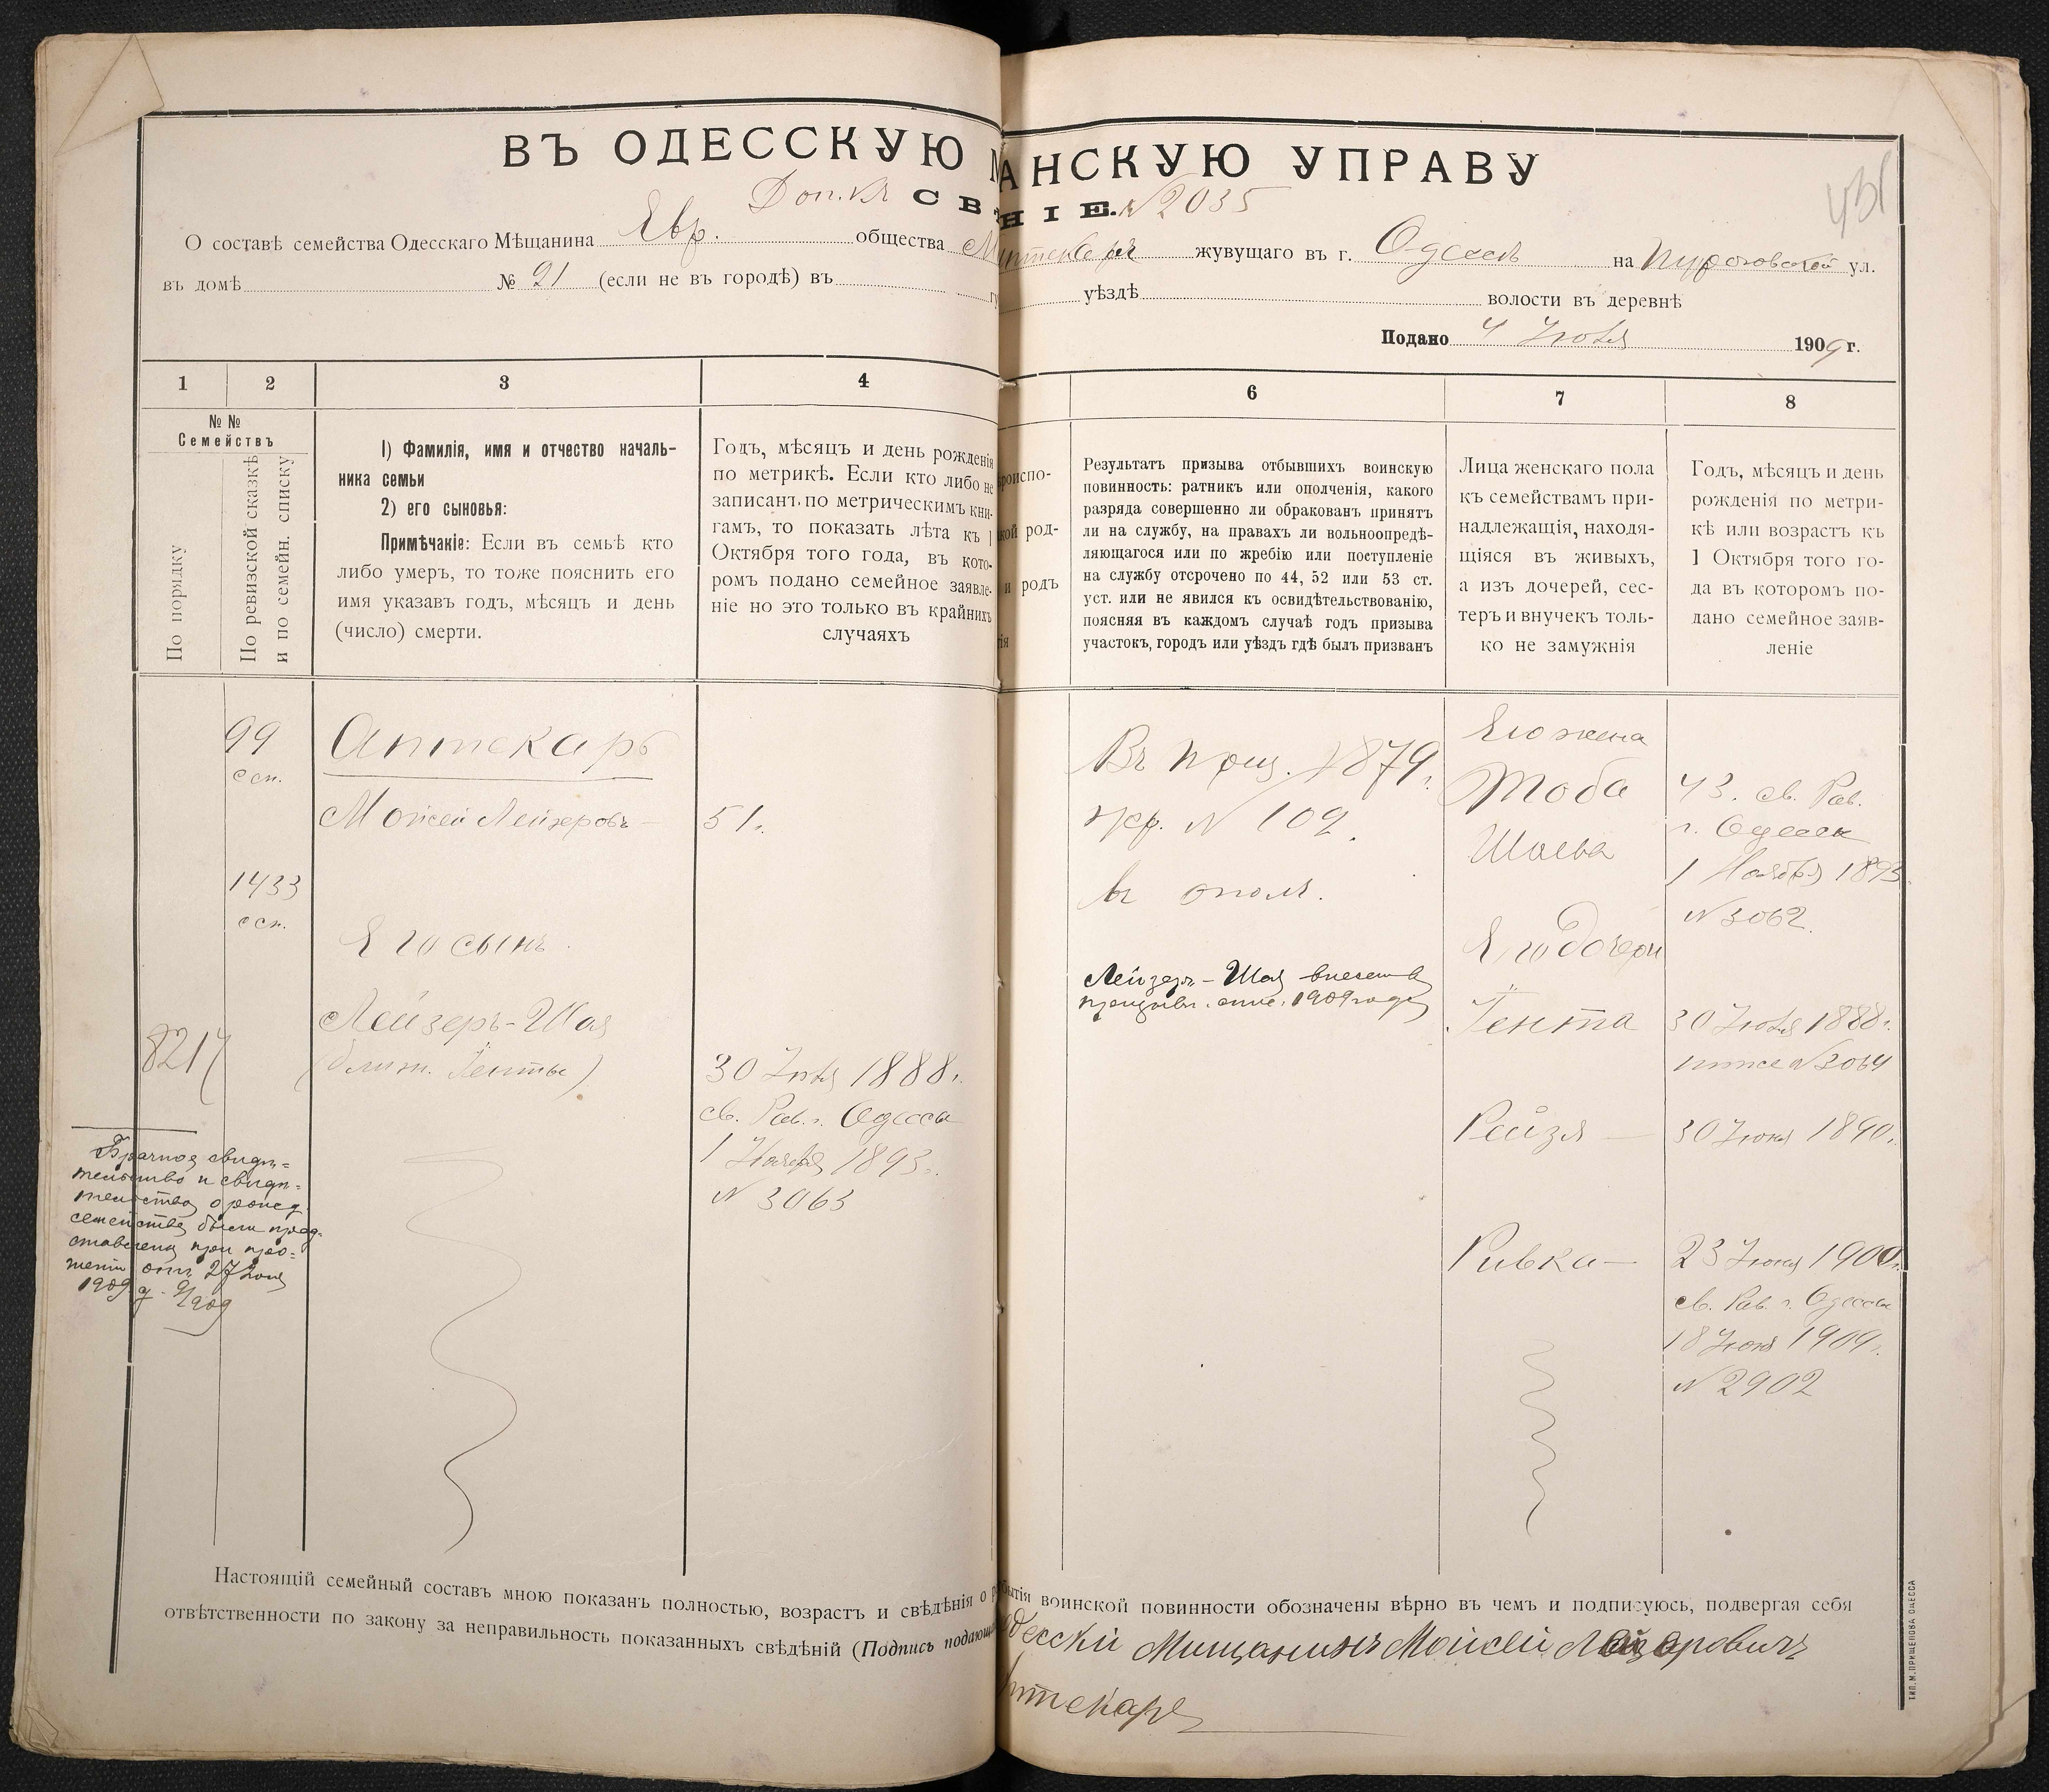 ВЪ ОДЕССКУЮ М АНСКУЮ УПРАВУ
Доп. къ СВ НІЕ. № 2035
431
О составѣ семейства Одесскаго Мѣщанина Евр. общества Аптекаря жувущаго въ г. Одессѣ на Пироговской ул.
въ домѣ № 21 (если не въ городѣ) въ уѣздѣ волости въ деревнѣ
Подано 4 Іюля 1909 г.
1
2
3
4
6
7
8
№ №
Семействъ
По порядку
По ревизской сказкѣ
и по семейн. списку
1) Фамилія, имя и отчество началь-
ника семьи
2) его сыновья:
Примѣчаніе: Если въ семьѣ кто
либо умеръ, то тоже пояснить его
имя указавъ годъ, мѣсяцъ и день
(число) смерти.
Годъ, мѣсяцъ и день рожденія
по метрикѣ. Если кто либо не
записанъ по метрическимъ кни-
гамъ, то показать лѣта къ 1
Октября того года, въ кото-
ромъ подано семейное заявле-
ніе но это только въ крайнихъ
случаяхъ
роиспо-
кой род-
и родъ
тія
Результатъ призыва отбывшихъ воинскую
повинность: ратникъ или ополченія, какого
разряда совершенно ли обракованъ принятъ
ли на службу, на правахъ ли вольноопредѣ-
ляющагося или по жребію или поступленіе
на службу отсрочено по 44, 52 или 53 ст.
уст. или не явился къ освидѣтельствованію,
поясняя въ каждомъ случаѣ годъ призыва
участокъ, городъ или уѣздъ гдѣ былъ призванъ
Лица женскаго пола
къ семействамъ при-
надлежащія, находя-
щіяся въ живыхъ,
а изъ дочерей, сес-
теръ и внучекъ толь-
ко не замужнія
Годъ, мѣсяцъ и день
рожденія по метри-
кѣ или возрастъ къ
1 Октября того го-
да въ которомъ по-
дано семейное заяв-
леніе
99
осн.
1433
осн.
8217
Аптекарь
Моисей Лейзеровъ
Его сынъ
Лейзеръ-Шая
(близн. Генты)
51.
30 Іюля 1888 г.
св. Рав. г. Одессы
1 Ноября 1893 г.
№ 3063
Въ приз. 1879 г.
жр. № 109.
въ опол.
Лейзеръ-Шая внесенъ въ
призывн. спис. 1909 года
Его жена
Тоба
Шаева
Его дочери
Гента
Рейзя
Ривка
43. св. Рав.
г. Одессы
1 Ноября 1893
№ 3062.
30 Іюля 1888 г.
тоже № 3064
30 Іюня 1890 г.
23 Іюня 1900 г.
св. Рав. г. Одессы
18 Іюня 1909 г.
№ 2902
Брачное свидѣ-
тельство и свидѣ-
тельства о рожд.
семейства были пред-
ставлены при про-
шеніи отъ 27 Іюня
1909 г.
Настоящій семейный составъ мною показанъ полностью, возрастъ и свѣдѣнія о бытія воинской повинности обозначены вѣрно въ чемъ и подписуюсь, подвергая себя
отвѣтственности по закону за неправильность показанныхъ свѣдѣній (Подпись подающ
Одесскій Мищанинъ Моисей Лазаровичъ
Аптекарь
ТИП. М. ПРИЩЕПОВА ОДЕССА